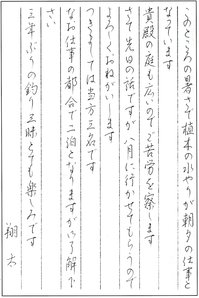 このところの暑さで植木の水やりが朝夕の仕事と
なっています
貴殿の庭も広いのでご苦労を察します
さて先日の話ですが八月に行かせてもらうので
よろしくおねがいします
つきましては当方三名です
なお仕事の都合で二泊となりますがご了解下
さい
三年ぶりの釣り三昧とても楽しみです
翔太